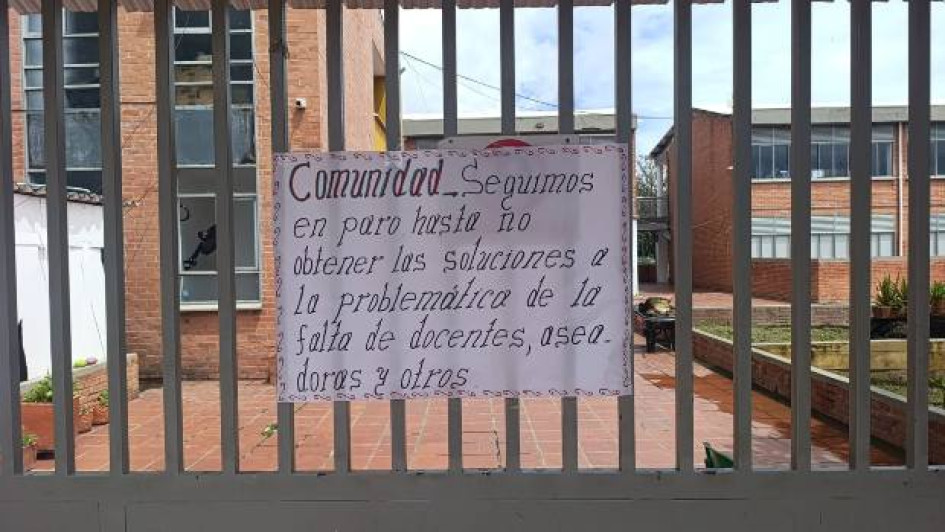 Comunidad_Seguimos
en paro hasta no
obtener las soluciones a
la problemática de la
falta de docentes, asea-
doras y otros